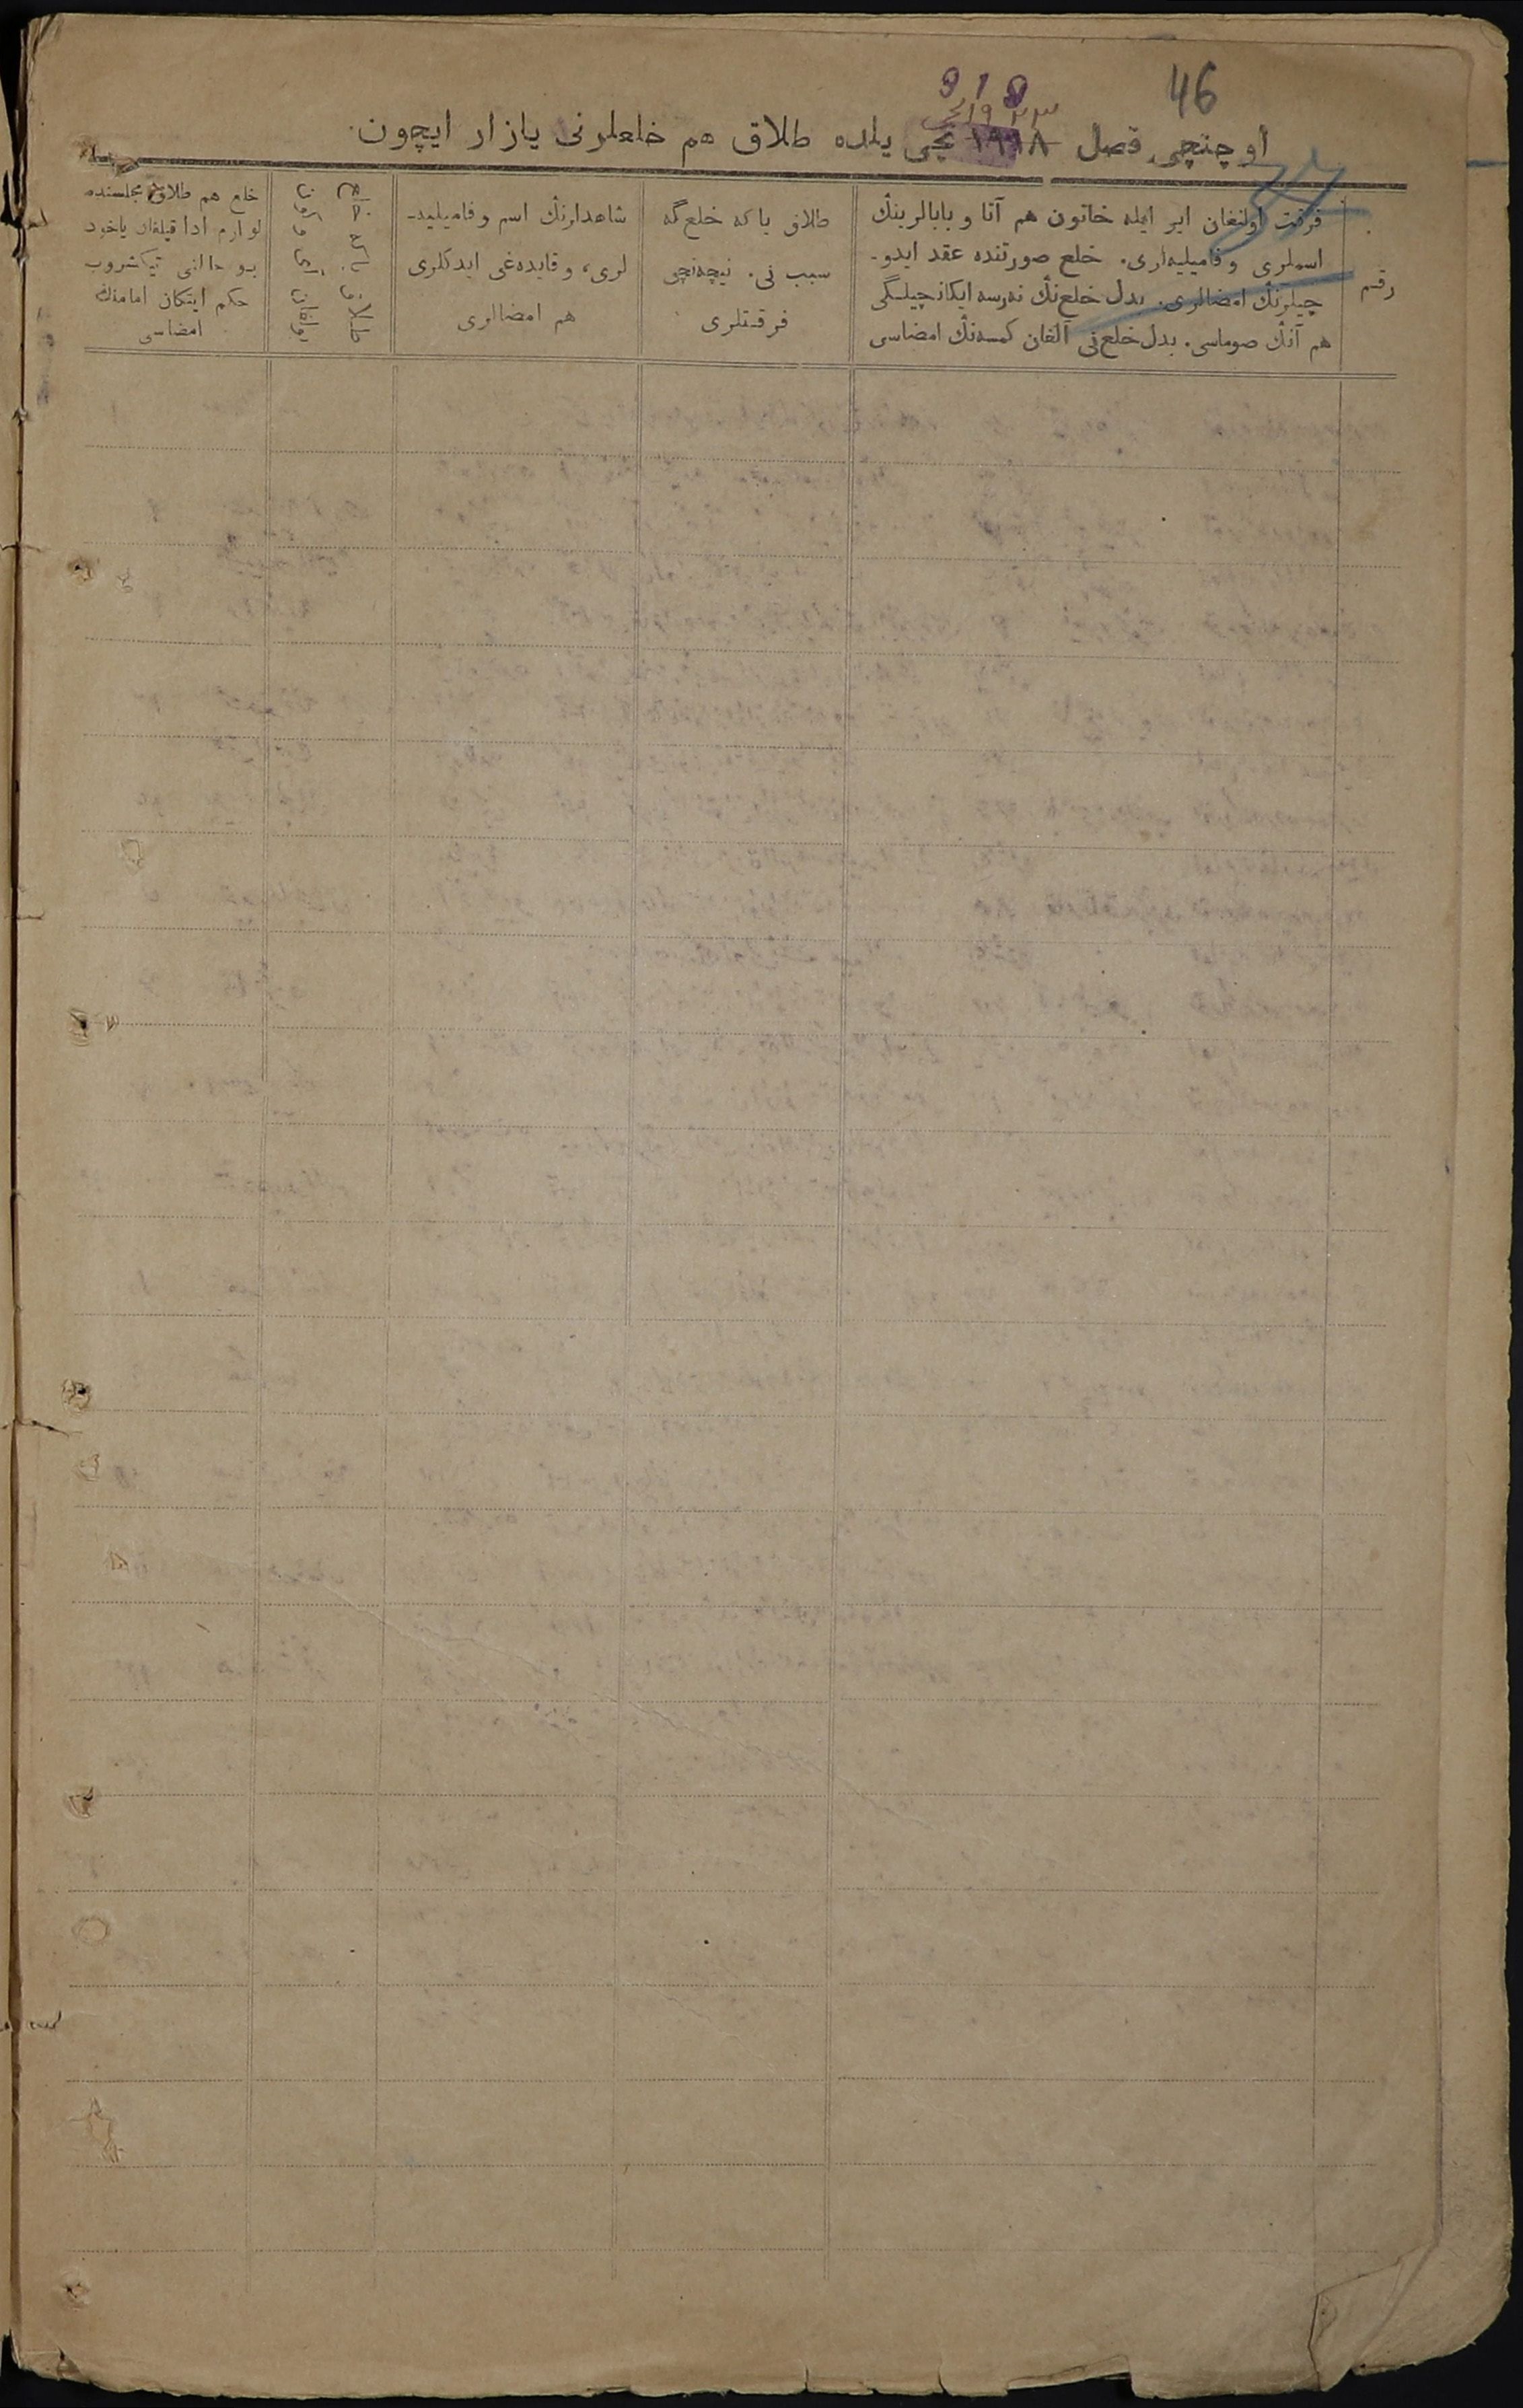 46
918
اوچنچی فصل ١٩١٨ نچی یلده طلاق هم خلعلرنی یازار ایچون.
رقم
فرقت اولنغان ایر ایله خاتون هم آتا و بابالرینڭ
اسملری و فامیلیه‌لری. خلع صورتنده عقد ایدو-
چیلرنڭ امضالری. بدل خلع‌نڭ نه‌رسه ایکانچیلیگی
هم آنڭ صوماسی. بدل خلع‌نی آلغان کمسه‌نڭ امضاسی
طلاق یا که خلع‌گه
سبب نی. نیچه‌نچی
فرقتلری
شاهدلرنڭ اسم و فامیلیه-
لری، و قایده‌غی ایدکلری
هم امضالری
خلع هم طلاق مجلسنده
لوازم ادا قیلغان یاخود
بو حالنی تیکشروب
حکم ایتکان امامنڭ
امضاسی